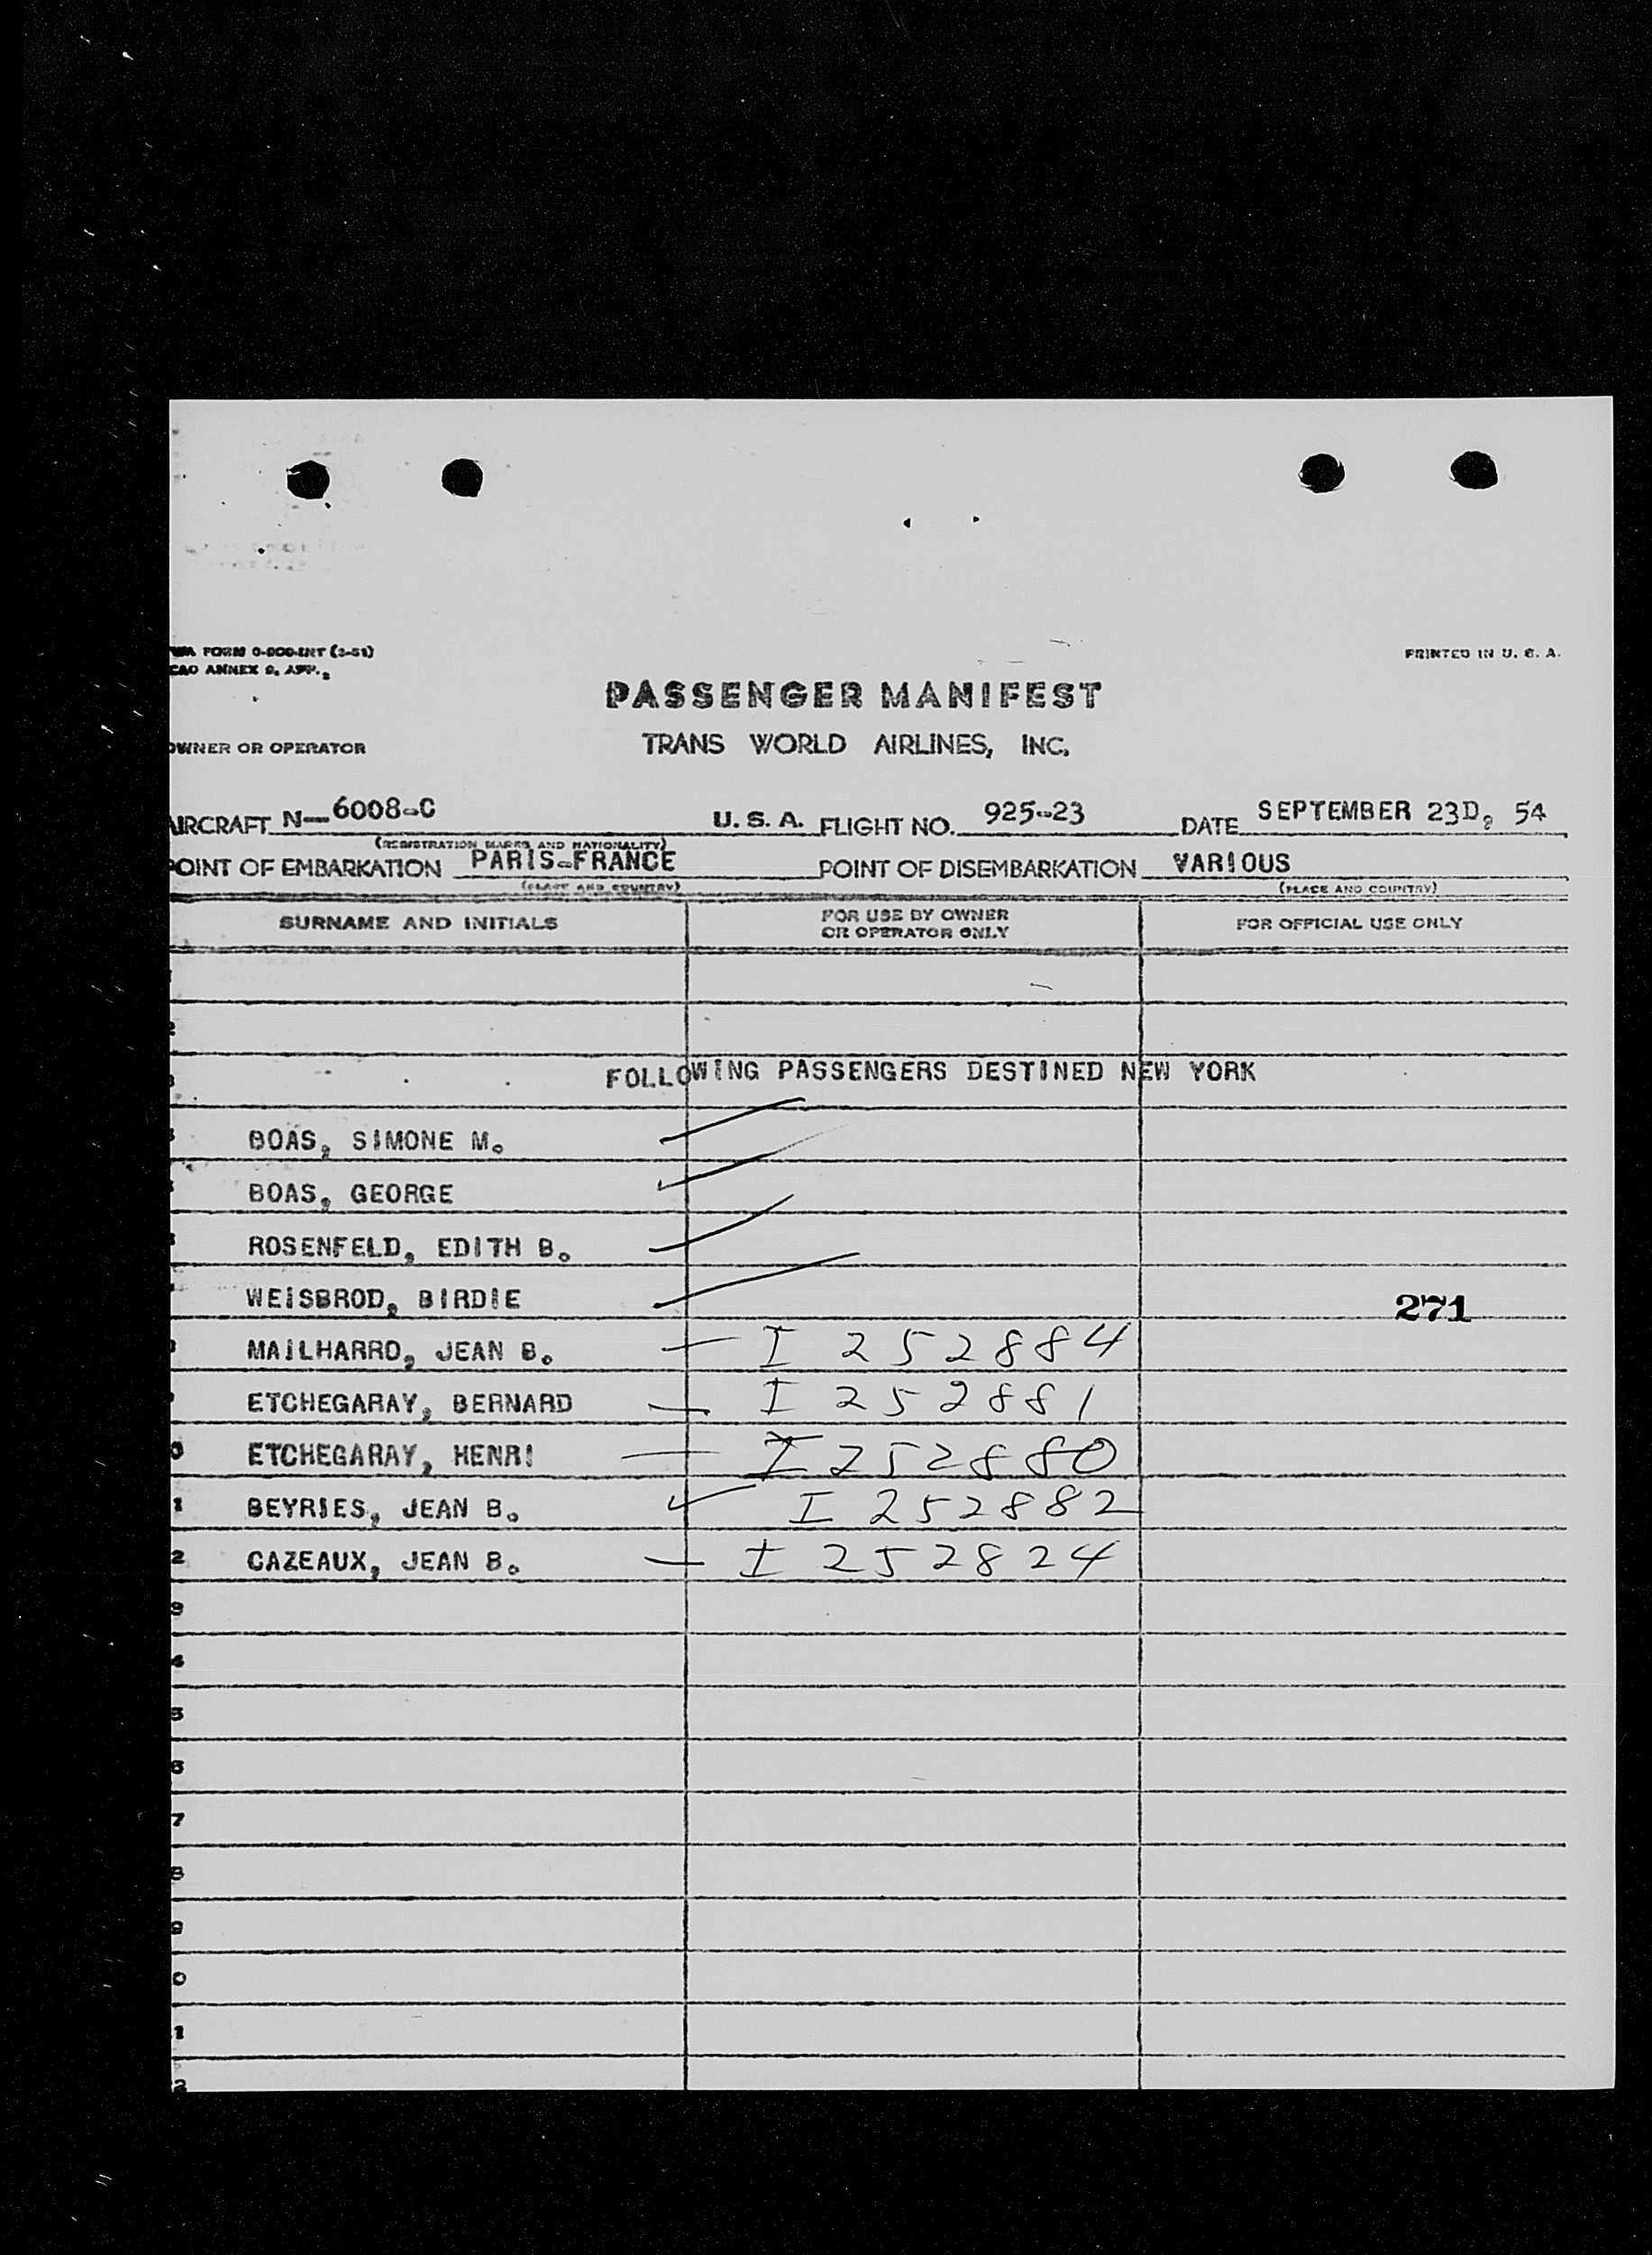 TWA FORM O-900-INT (3-51)
ICAO ANNEX 9, APP.
PRINTED IN U. S. A.
PASSENGER MANIFEST
OWNER OR OPERATOR TRANS WORLD AIRLINES, INC.
AIRCRAFT N—6008-C U. S. A. FLIGHT NO. 925-23 DATE SEPTEMBER 23D, 54
(REGISTRATION MARKS AND NATIONALITY)
POINT OF EMBARKATION PARIS-FRANCE POINT OF DISEMBARKATION VARIOUS
(PLACE AND COUNTRY) (PLACE AND COUNTRY)
SURNAME AND INITIALS FOR USE BY OWNER OR OPERATOR ONLY FOR OFFICIAL USE ONLY
2
3 FOLLOWING PASSENGERS DESTINED NEW YORK
BOAS, SIMONE M.
BOAS, GEORGE
ROSENFELD, EDITH B.
WEISBROD, BIRDIE 271
MAILHARRO, JEAN B. — I 252884
ETCHEGARAY, BERNARD — I 252881
0 ETCHEGARAY, HENRI — I 252880
1 BEYRIES, JEAN B. ✓ I 252882
2 CAZEAUX, JEAN B. — I 252824
3
4
5
6
7
8
9
0
1
2